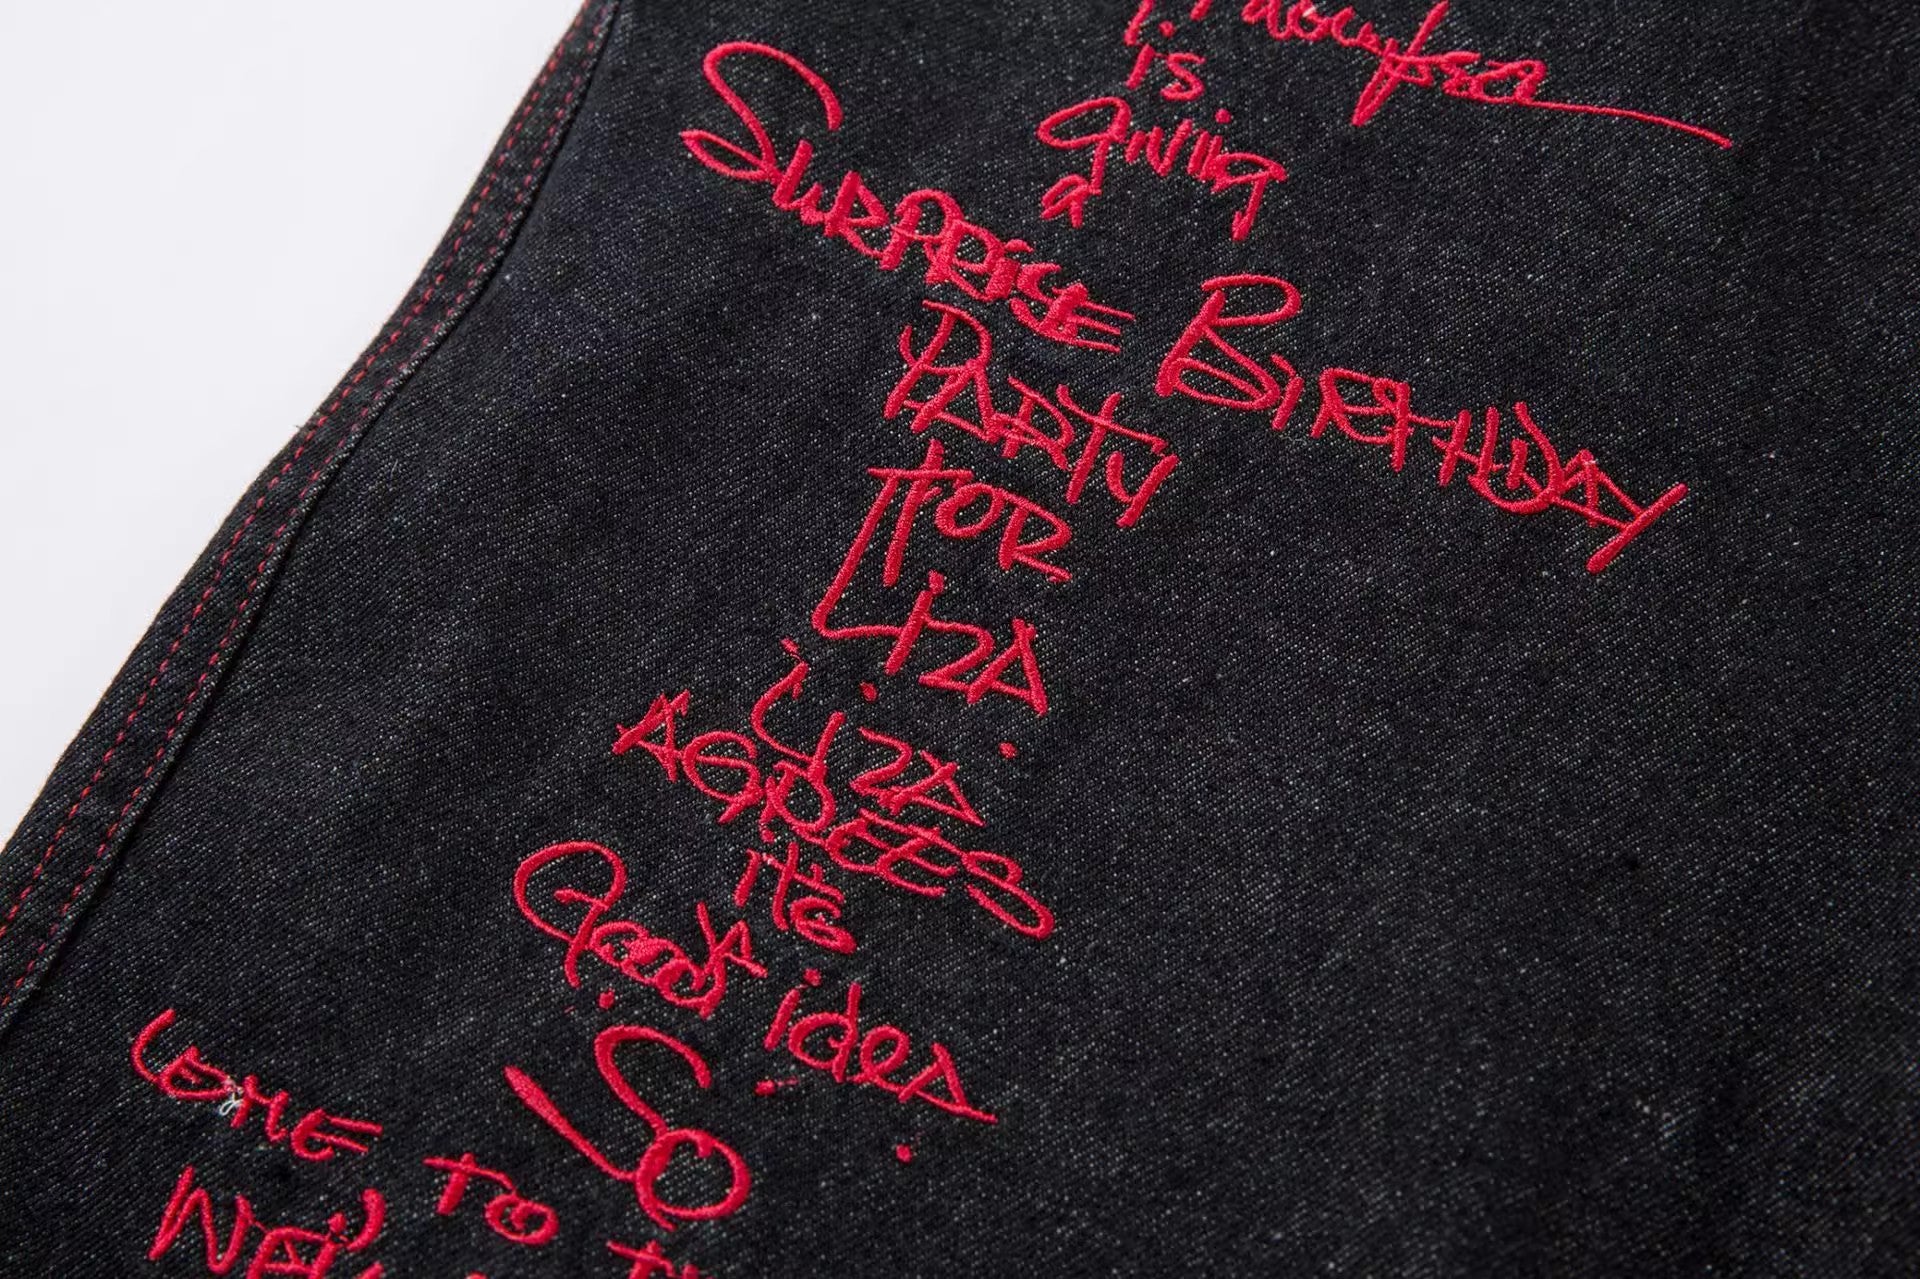 is
giving
a
SURPRISE BIRTHDAY
PARTY
FOR
LIZA
LIZA
AGREES
it's
Good idea
SO
COME TO